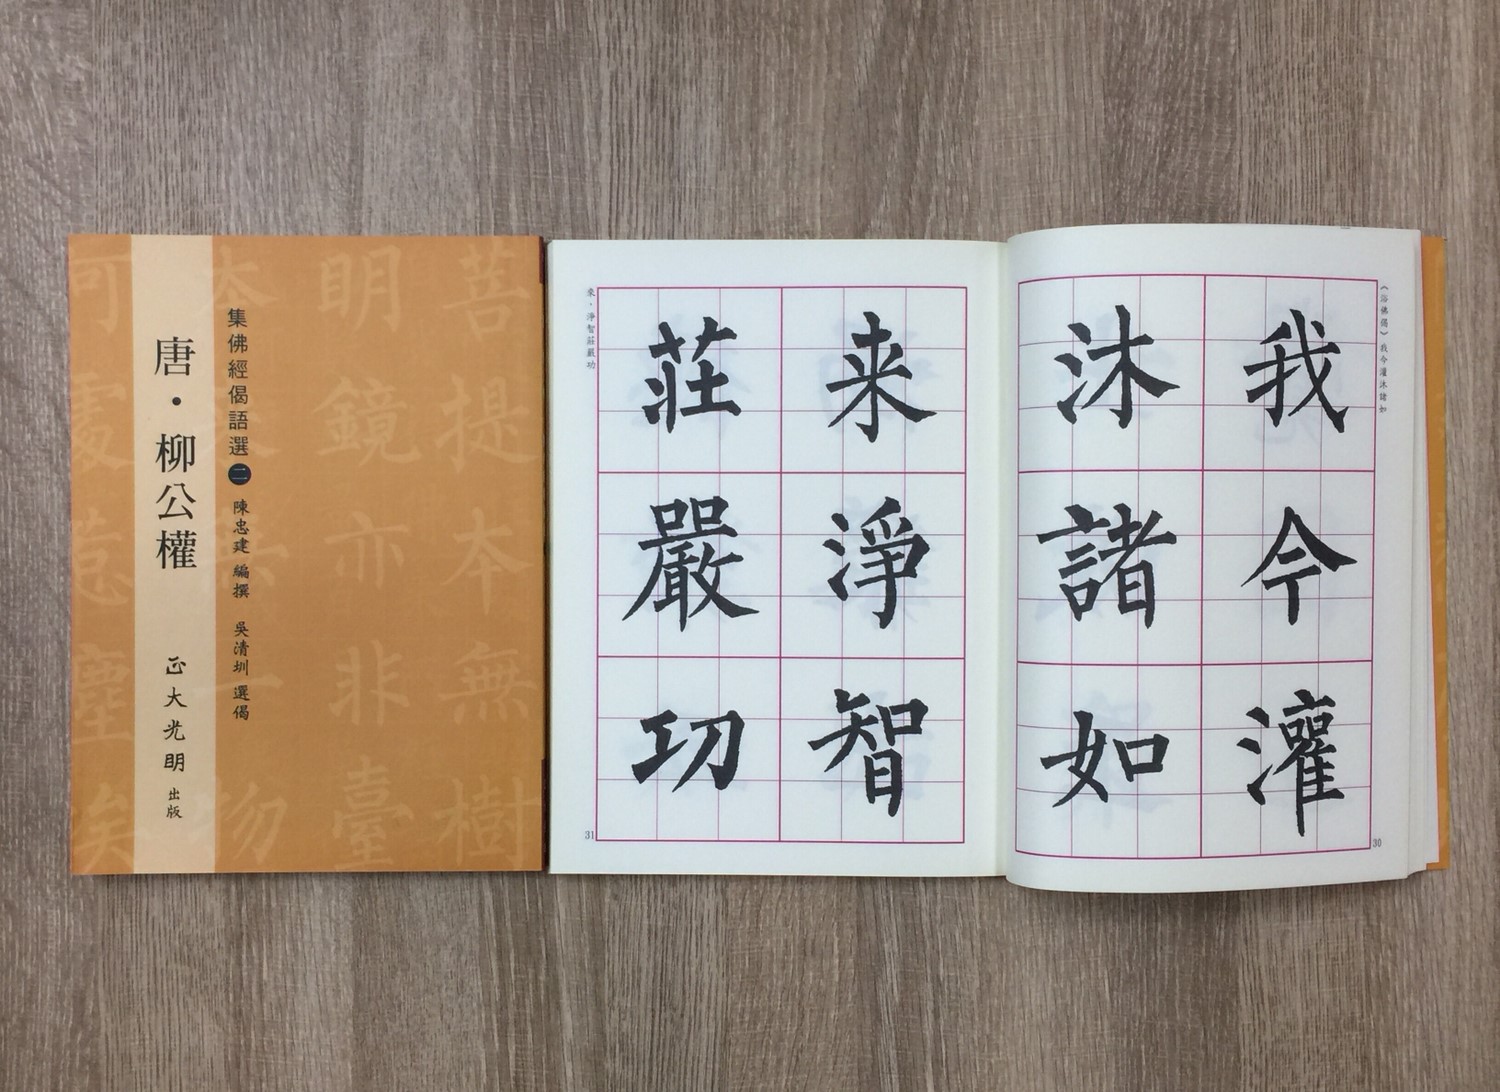 集佛經偈語選二 陳忠建 編撰 吳清圳 選偈
唐・柳公權 正大光明 出版
菩提本無樹
明鏡亦非臺
本來無一物
何處惹塵埃
《浴佛偈》我今灌沐諸如
我今灌
沐諸如
30
来淨智
莊嚴功
來・淨智莊嚴功
31